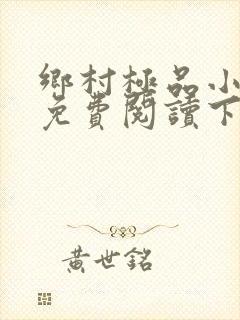 鄉村極品小
免費閱讀下
黃世銘